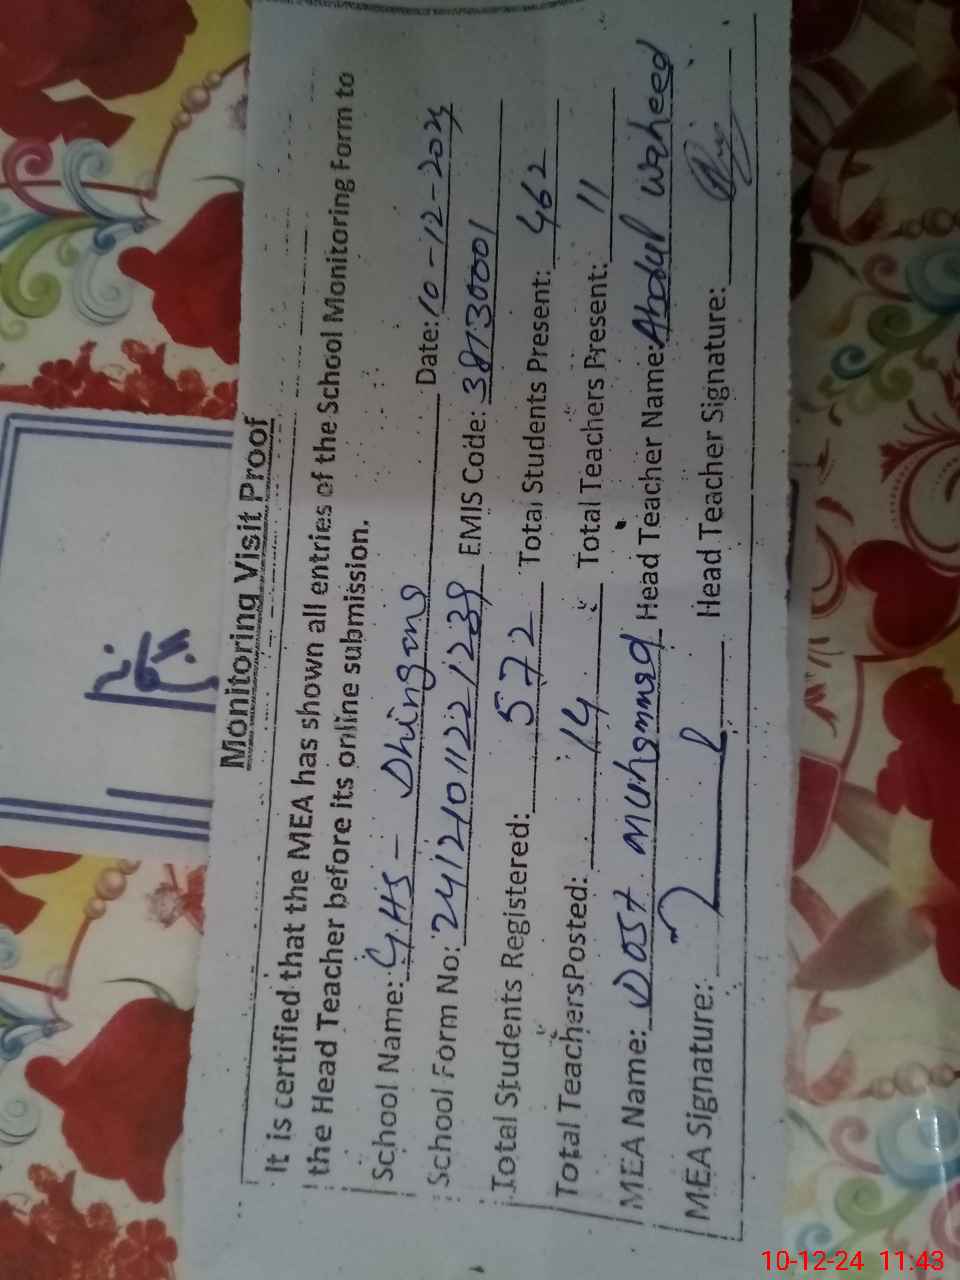 Monitoring Visit Proof
It is certified that the MEA has shown all entries of the School Monitoring Form to
the Head Teacher before its online submission.
School Name: GHS - Dhingano Date: 10-12-2024
School Form No: 24121011221239 EMIS Code: 38130001
Total Students Registered: 572 Total Students Present: 462
Total TeachersPosted: 14 Total Teachers Present: 11
MEA Name: Dost Muhammad Head Teacher Name: Abdul waheed
MEA Signature: Head Teacher Signature:
10-12-24 11:43